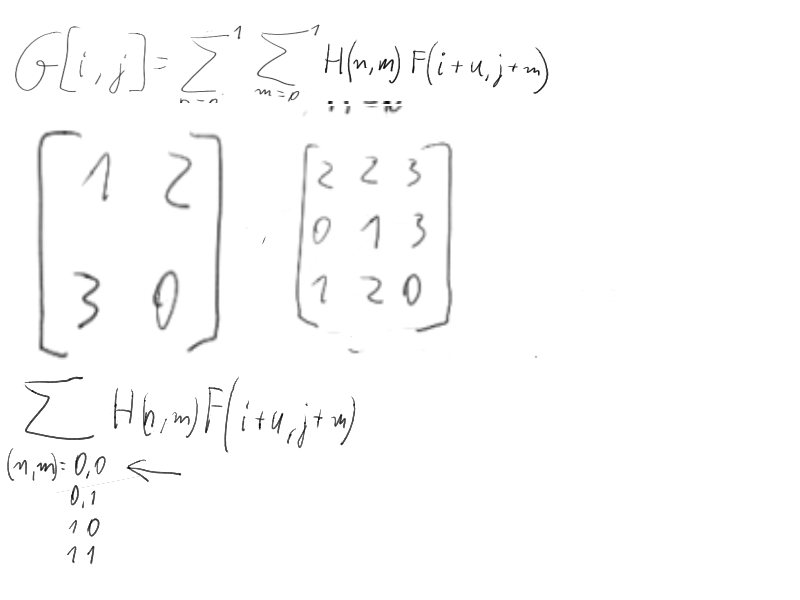 G[i,j]= ∑ 1 n=0 ∑ 1 m=0 H(n,m) F(i+u,j+m)
[1 2 . [2 2 3
0 1 3
3 0] 1 2 0]
∑ H(n,m)F(i+u,j+m)
(n,m)=0,0 ←
0,1
1 0
1 1